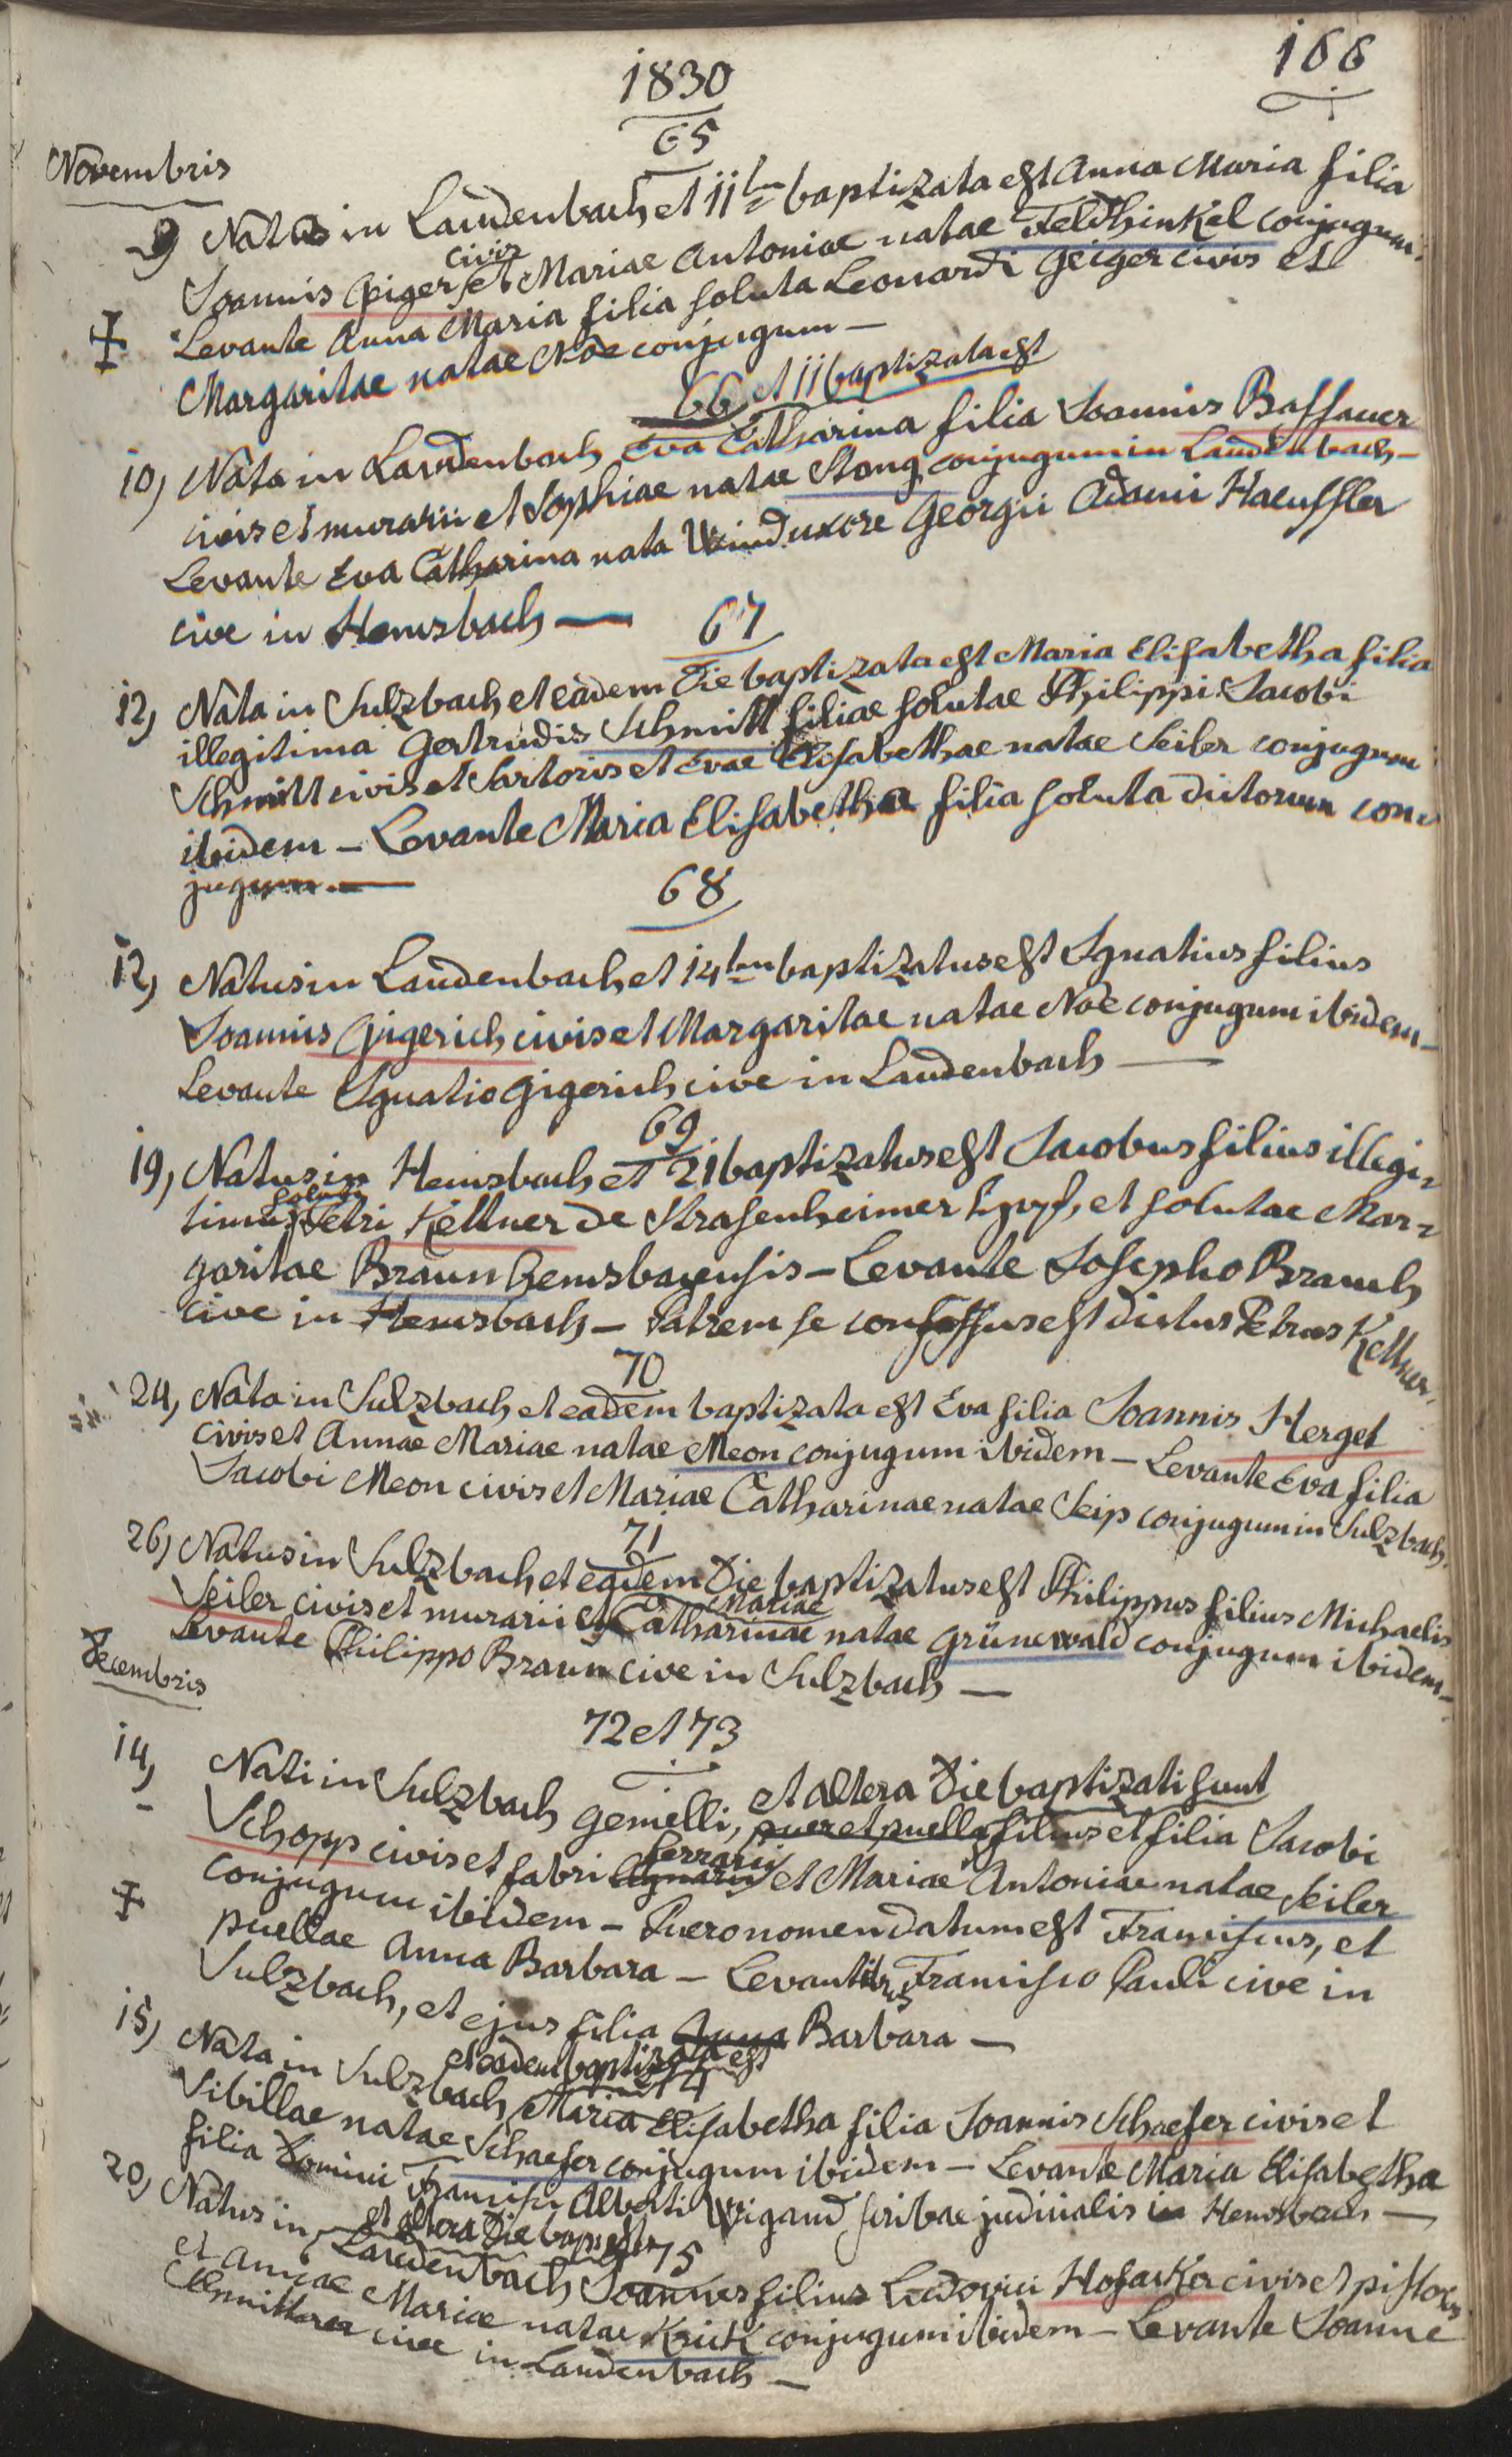 1830
166
65
Novembris
9 Nata in Laudenbach et 11tm baptizata est Anna Maria filia
civis
Joannis Giger et Mariae Antoniae natae Feldhinkel conjugum.
Levante Anna Maria filia soluta Leonardi Geiger civis et
Margaritae natae Noe conjugum —
66 et 11 baptizata est
10, Nata in Laudenbach Eva Catharina filia Joannis Bassauer
civis et murarii et Sophiae natae Stang conjugum in Laudenbach —
Levante Eva Catharina nata Wind uxore Georgii Adami Haeussler
cive in Hemsbach —
67
12, Nata in Sulzbach et eadem die baptizata est Maria Elisabetha filia
illegitima Gertrudis Schmitt filiae solutae Philippi Jacobi
Schmitt civis et Sartoris et Evae Elisabethae natae Seiler conjugum
ibidem — Levante Maria Elisabetha filia soluta dictorum con-
jugum. —
68
12, Natus in Laudenbach et 14tm baptizatus est Ignatius filius
Joannis Gigerich civis et Margaritae natae Noe conjugum ibidem —
Levante Ignatio Gigerich cive in Laudenbach —
69
19, Natus in Hemsbach et 21 baptizatus est Jacobus filius illegi-
soluti
timus Petri Kettner de Strasenheimer Hof, et solutae Mar-
garitae Braun hemsbacensis — Levante Josepho Brauch
cive in Hemsbach — Patrem se confessus est dictus Petrus Kettner.
70
24, Nata in Sulzbach et eadem baptizata est Eva filia Joannis Herget
civis et Annae Mariae natae Meon conjugum ibidem — Levante Eva filia
Jacobi Meon civis et Mariae Catharinae natae Seip conjugum in Sulzbach.
71
26, Natus in Sulzbach et eadem die baptizatus est Philippus filius Michaelis
Mariae
Seiler civis et murarii et Catharinae natae Grünewald conjugum ibidem —
Levante Philippo Braun cive in Sulzbach —
Decembris
72 et 73
14, Nati in Sulzbach gemelli, et altera die baptizati sunt
puer et puella filius et filia Jacobi
ferrarii
Schopp civis et fabri et Mariae Antoniae natae Seiler
conjugum ibidem — Puero nomen datum est Franciscus, et
puellae Anna Barbara — Levantibus Francisco Pauli cive in
Sulzbach, et ejus filia Anna Barbara —
et eadem baptizata est
74
15, Nata in Sulzbach Maria Elisabetha filia Joannis Schaefer civis et
Sibillae natae Schaefer conjugum ibidem — Levante Maria Elisabetha
filia Domini Francisci Alberti Wigand scribae judicialis in Hemsbach —
et altera die bapt est
75
20, Natus in Laudenbach Joannes filius Ludovici Hofacker civis et pistoris
et Annae Mariae natae Krick conjugum ibidem — Levante Joanne
cive in Laudenbach —